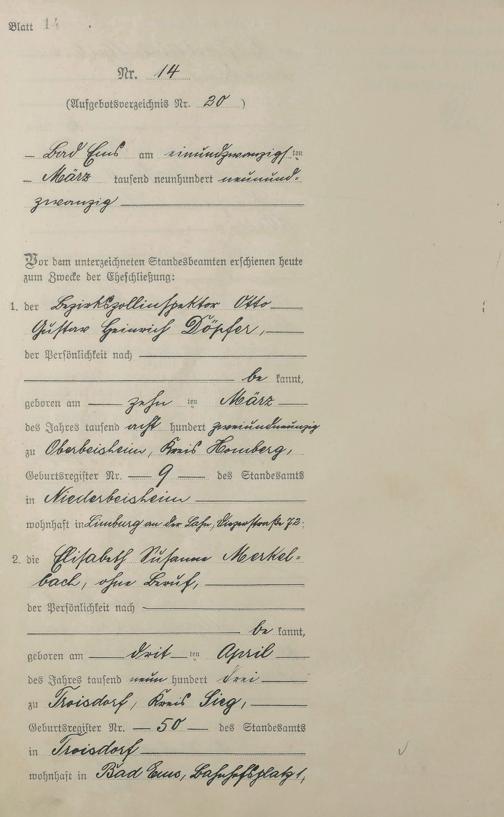 Blatt 14
Nr. 14
(Aufgebotsverzeichnis Nr. 20)
Bad Ems am einundzwanzigsten
März tausend neunhundert neunund-
zwanzig
Vor dem unterzeichneten Standesbeamten erschienen heute
zum Zwecke der Eheschließung:
1. der Bezirkszollinspektor Otto
Gustav Heinrich Döpfer,
der Persönlichkeit nach
be kannt,
geboren am zehn ten März
des Jahres tausend acht hundert zweiundneunzig
zu Oberbeisheim, Kreis Homberg,
Geburtsregister Nr. 9 des Standesamts
in Niederbeisheim
wohnhaft in Limburg an der Lahn, Diezerstraße 72.
2. die Elisabeth Susanne Merkel-
bach, ohne Beruf,
der Persönlichkeit nach
be kannt,
geboren am drit ten April
des Jahres tausend neun hundert drei
zu Troisdorf, Kreis Sieg,
Geburtsregister Nr. 50 des Standesamts
in Troisdorf
wohnhaft in Bad Ems, Bahnhofsplatz 1,